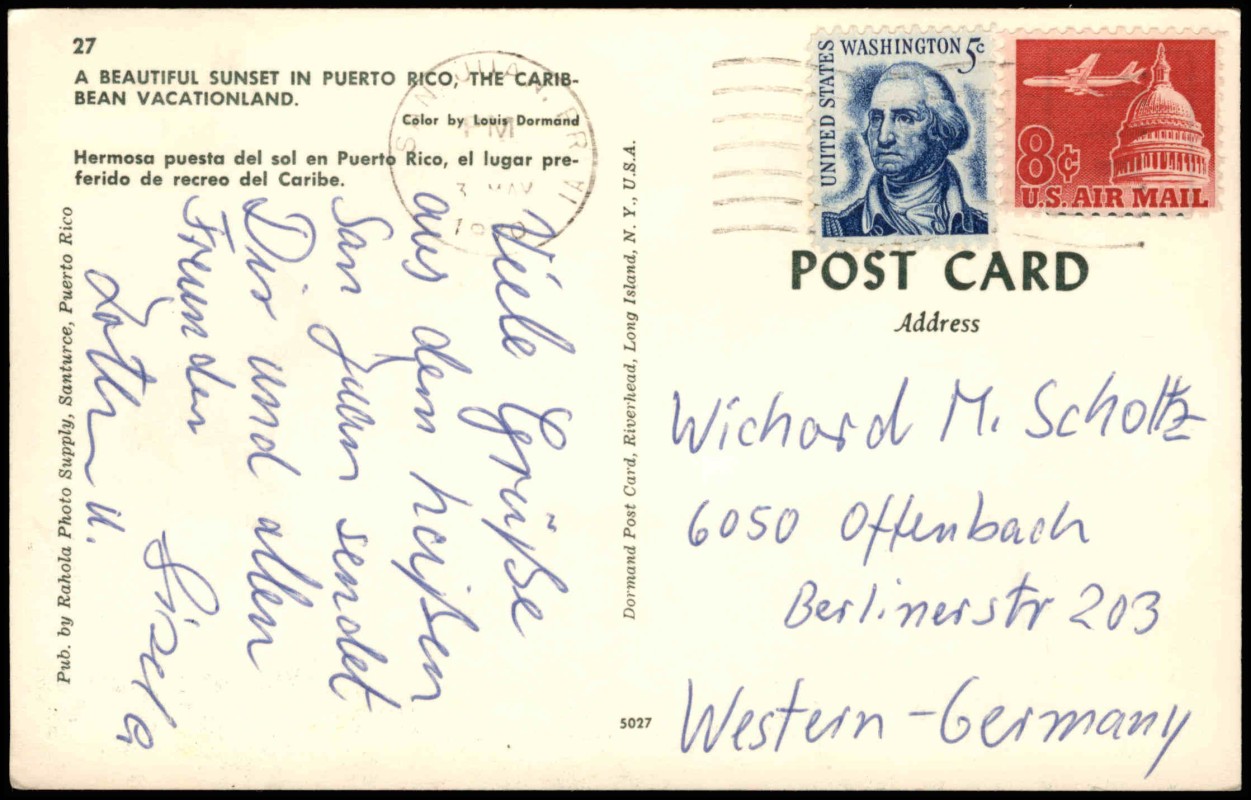 27
A BEAUTIFUL SUNSET IN PUERTO RICO, THE CARIB-
BEAN VACATIONLAND.
Color by Louis Dormand
Hermosa puesta del sol en Puerto Rico, el lugar pre-
ferido de recreo del Caribe.
Pub. by Rahola Photo Supply, Santurce, Puerto Rico
Viele Grüße
aus dem heißen
San Juan sendet
Dir und allen
Freunden
Lothar u.
Gisela
Dormand Post Card, Riverhead, Long Island, N. Y., U.S.A.
5027
SAN JUAN, P.R.
PM
3 MAY
UNITED STATES
WASHINGTON 5c
8¢
U.S. AIR MAIL
POST CARD
Address
Wichard M. Scholtz
6050 Offenbach
Berlinerstr 203
Western-Germany